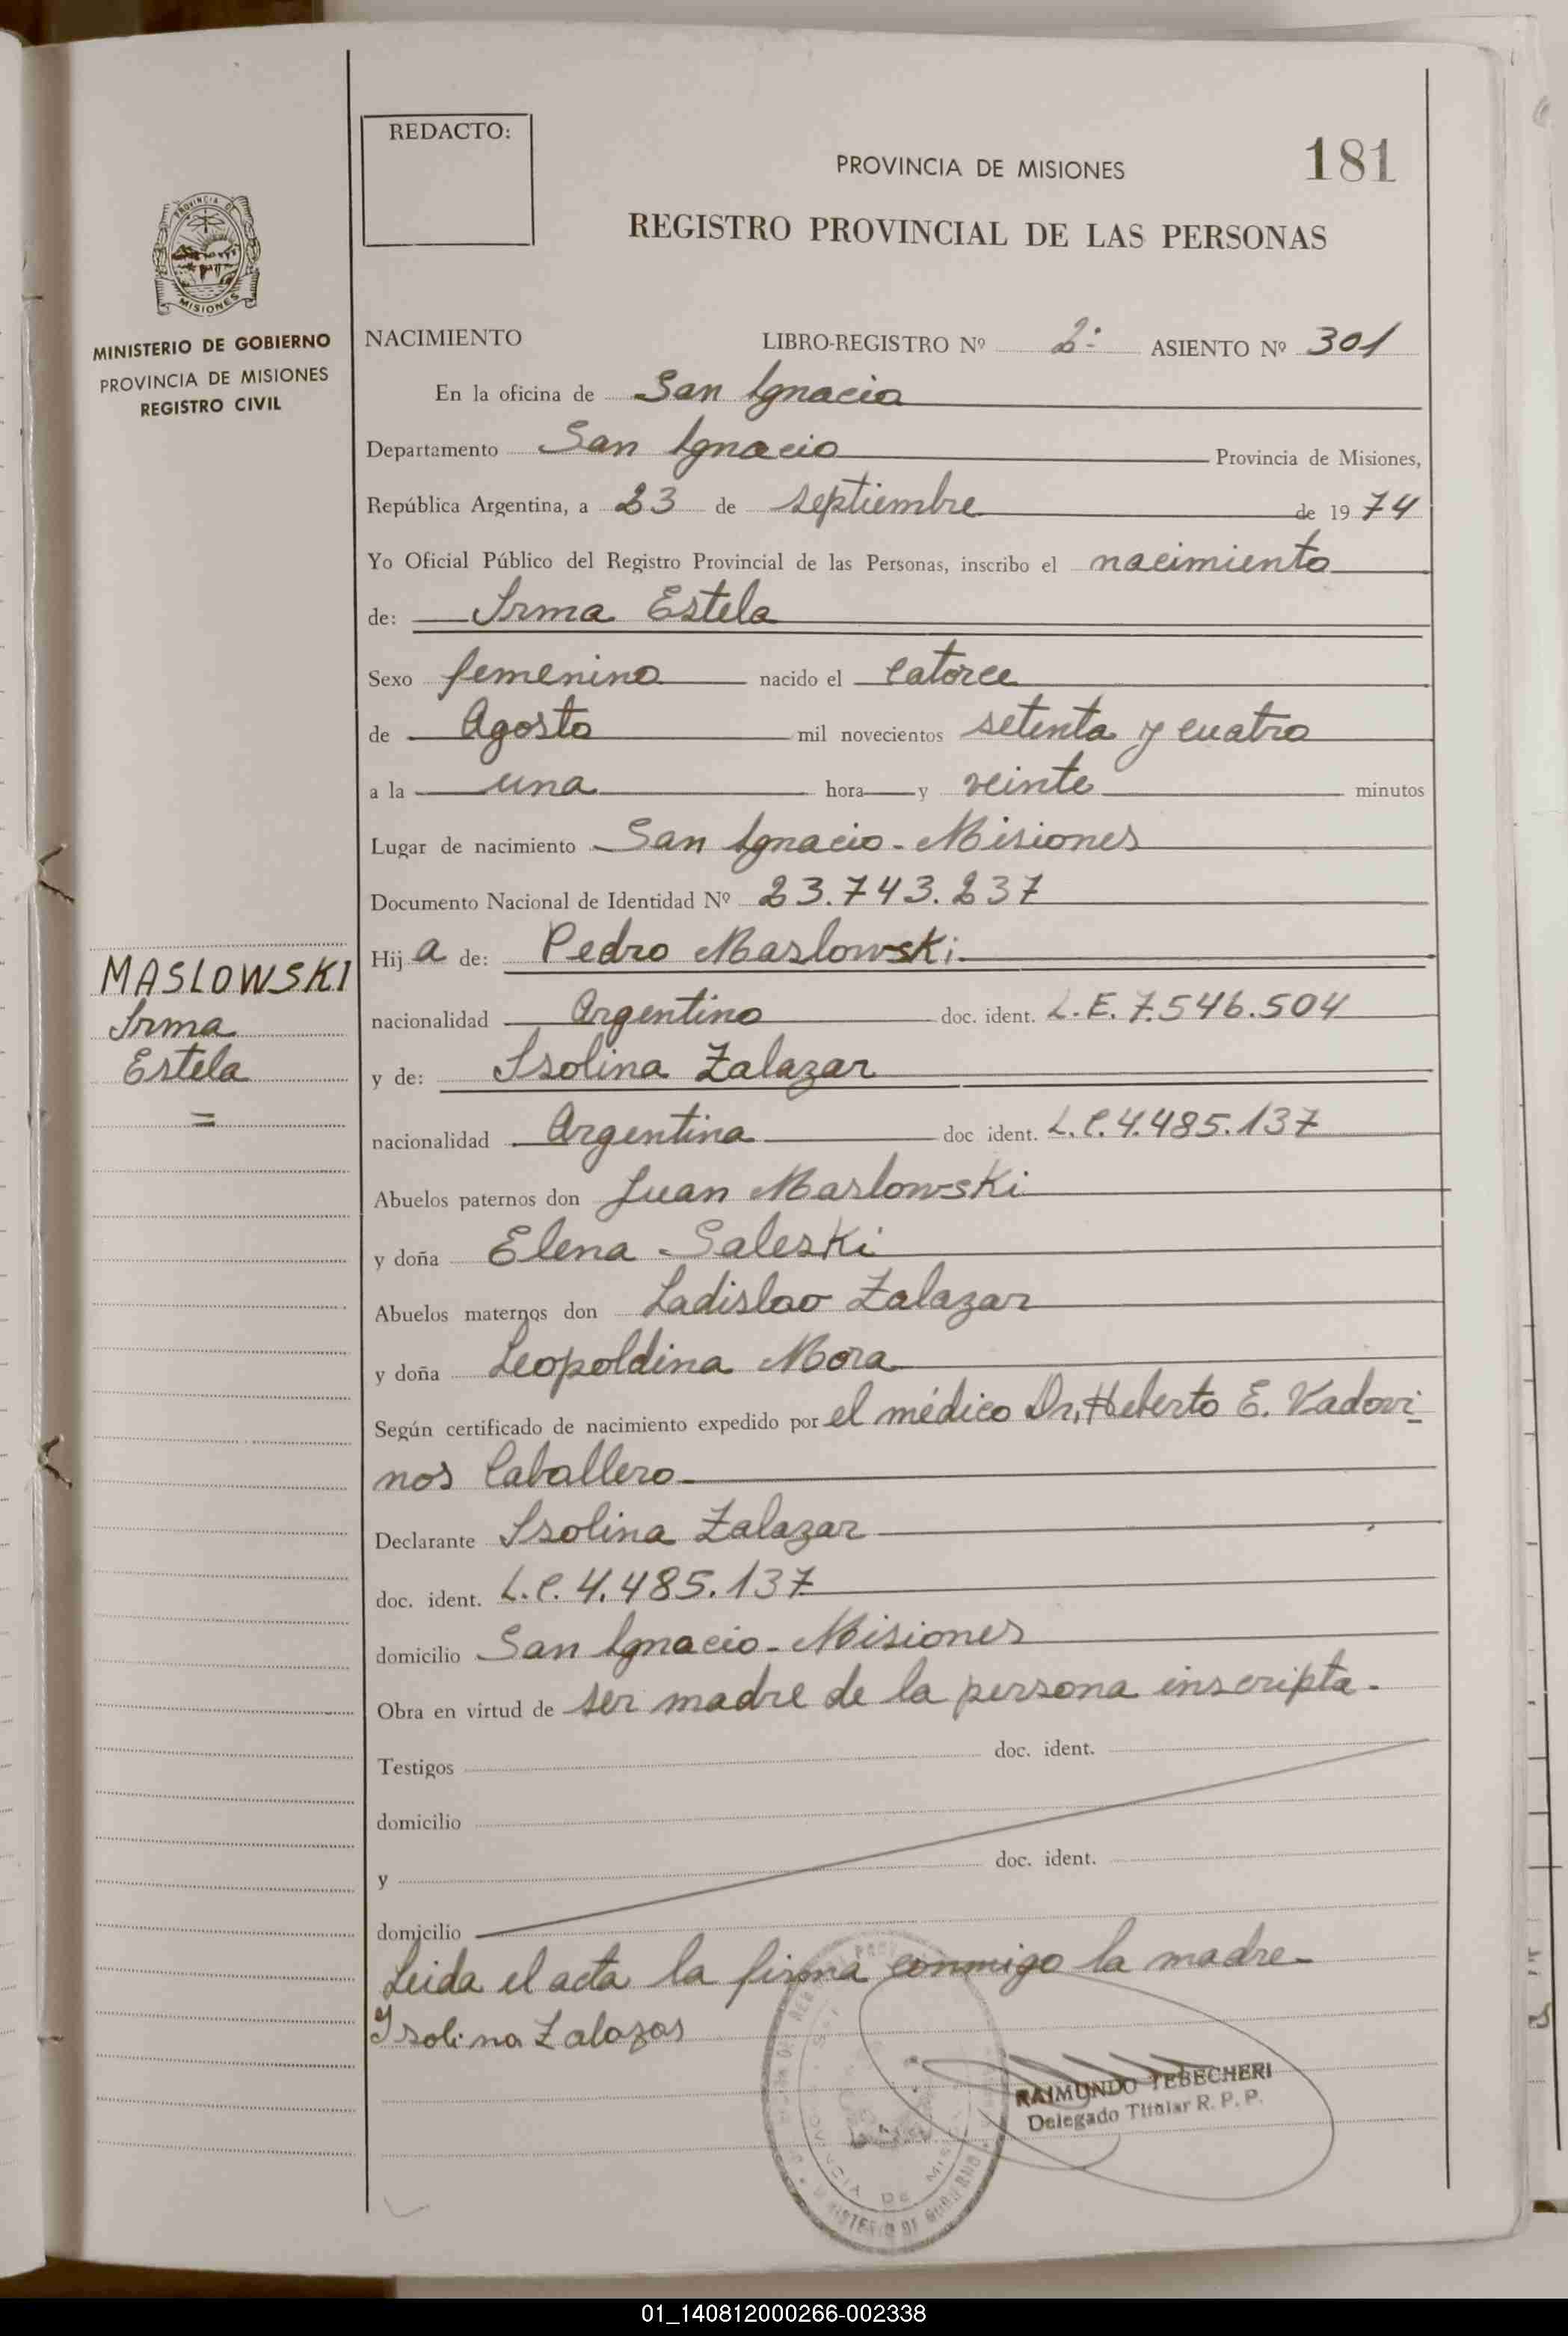 REDACTO:
PROVINCIA DE MISIONES
181
REGISTRO PROVINCIAL DE LAS PERSONAS
MISIONES
MINISTERIO DE GOBIERNO
PROVINCIA DE MISIONES
REGISTRO CIVIL
NACIMIENTO LIBRO-REGISTRO Nº 2º ASIENTO Nº 301
En la oficina de San Ignacio
Departamento San Ignacio Provincia de Misiones,
República Argentina, a 23 de septiembre de 1974
Yo Oficial Público del Registro Provincial de las Personas, inscribo el nacimiento
de: Irma Estela
Sexo femenino nacido el catorce
de Agosto mil novecientos setenta y cuatro
a la una hora y veinte minutos
Lugar de nacimiento San Ignacio - Misiones
Documento Nacional de Identidad Nº 23.743.237
MASLOWSKI
Irma
Estela
=
Hija de: Pedro Maslowski
nacionalidad Argentino doc. ident. L.E. 7.546.504
y de: Isolina Zalazar
nacionalidad Argentina doc ident. L.C. 4.485.137
Abuelos paternos don Juan Maslowski
y doña Elena Saleski
Abuelos maternos don Ladislao Zalazar
y doña Leopoldina Mora
Según certificado de nacimiento expedido por el médico Dr, Heberto E. Vadovi-
nos Caballero
Declarante Isolina Zalazar
doc. ident. L.C. 4.485.137
domicilio San Ignacio - Misiones
Obra en virtud de ser madre de la persona inscripta.
Testigos doc. ident.
domicilio
y doc. ident.
domicilio
Leida el acta la firma conmigo la madre
Isolina Zalazar
RAIMUNDO YEBECHERI
Delegado Titular R. P. P.
01_140812000266-002338